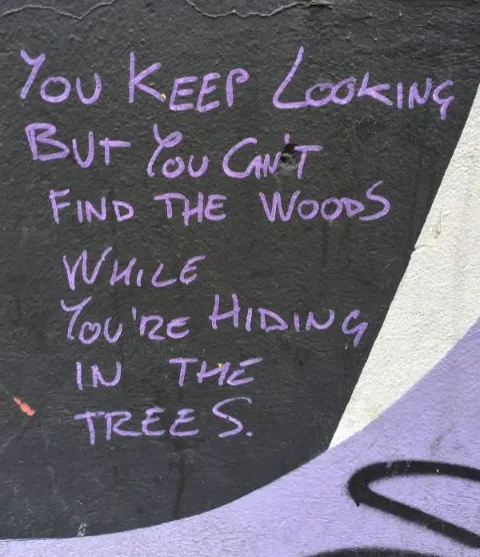 You Keep Looking
But You Can't
Find The Woods
While
You're Hiding
In The
Trees.